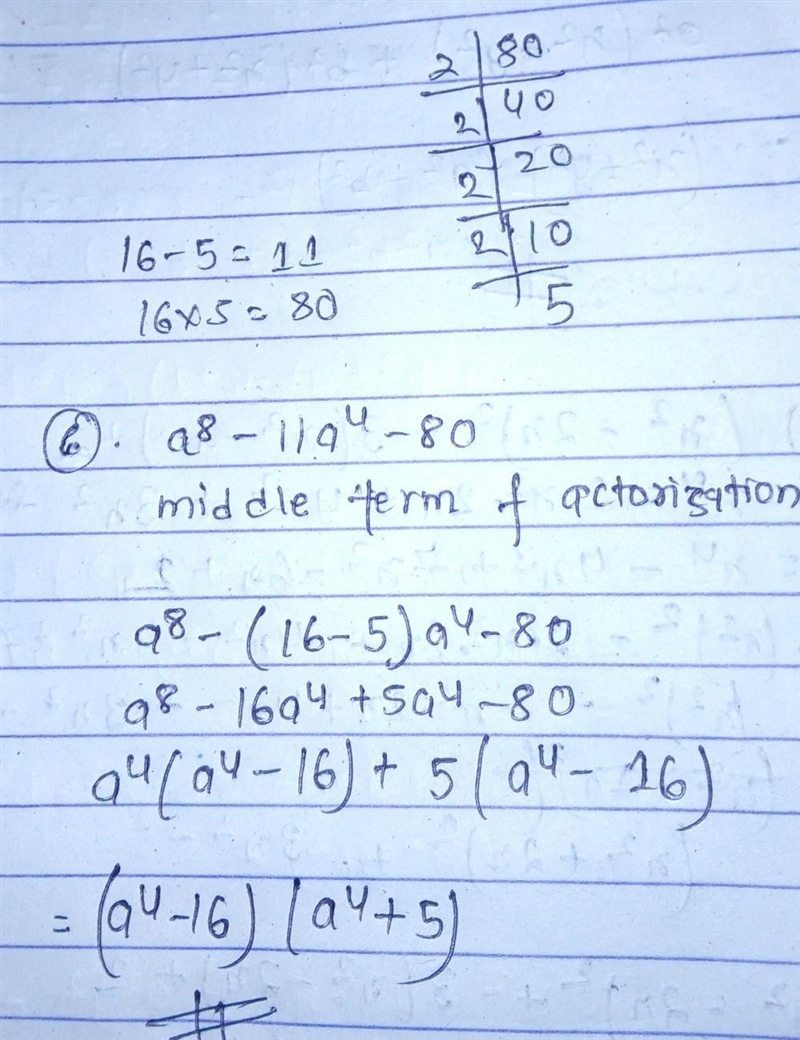 2 | 80
2 | 40
2 | 20
2 | 10
5
16-5 = 11
16×5 = 80
6. a⁸ - 11a⁴ - 80
middle term factorization
a⁸ - (16-5)a⁴ - 80
a⁸ - 16a⁴ + 5a⁴ - 80
a⁴(a⁴ - 16) + 5(a⁴ - 16)
= (a⁴-16) (a⁴+5)